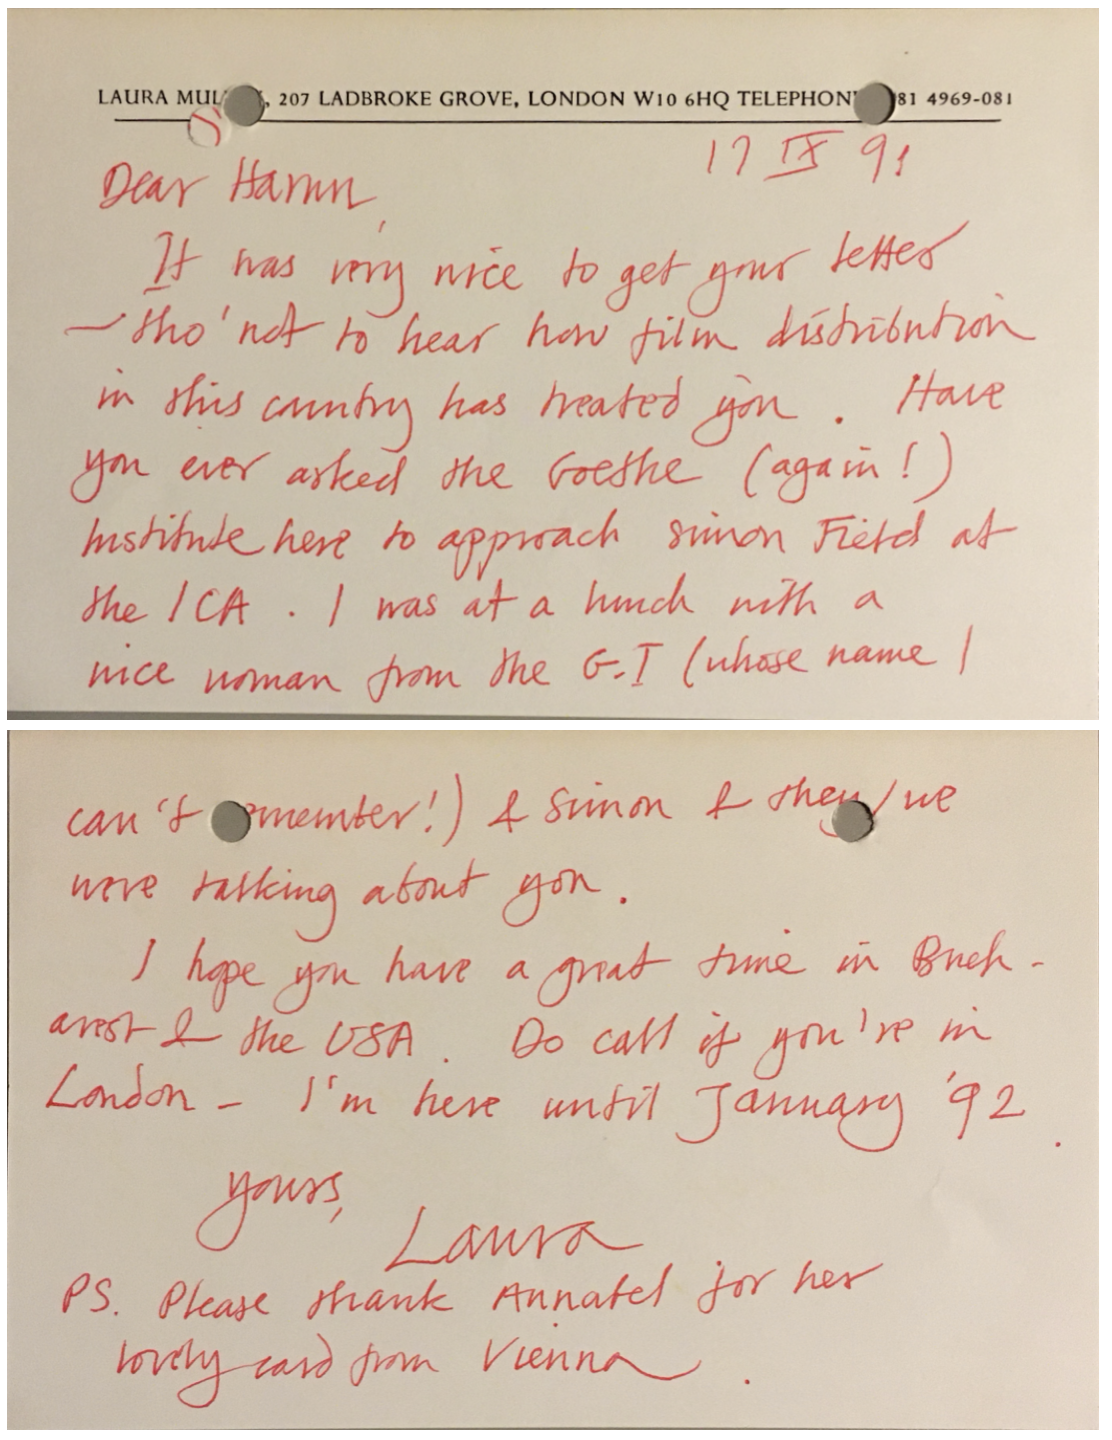 LAURA MUL , 207 LADBROKE GROVE, LONDON W10 6HQ TELEPHON 81 4969-081
17 IX 91
Dear Harun,
It was very nice to get your letter
— tho' not to hear how film distribution
in this country has treated you. Have
you ever asked the Goethe (again!)
Institute here to approach Simon Field at
the ICA. I was at a lunch with a
nice woman from the G.I (whose name I
can't remember!) & Simon & they/we
were talking about you.
I hope you have a great time in Buch-
arest & the USA. Do call if you're in
London - I'm here until January '92.
Yours,
Laura
PS. Please thank Annabel for her
lovely card from Vienna.